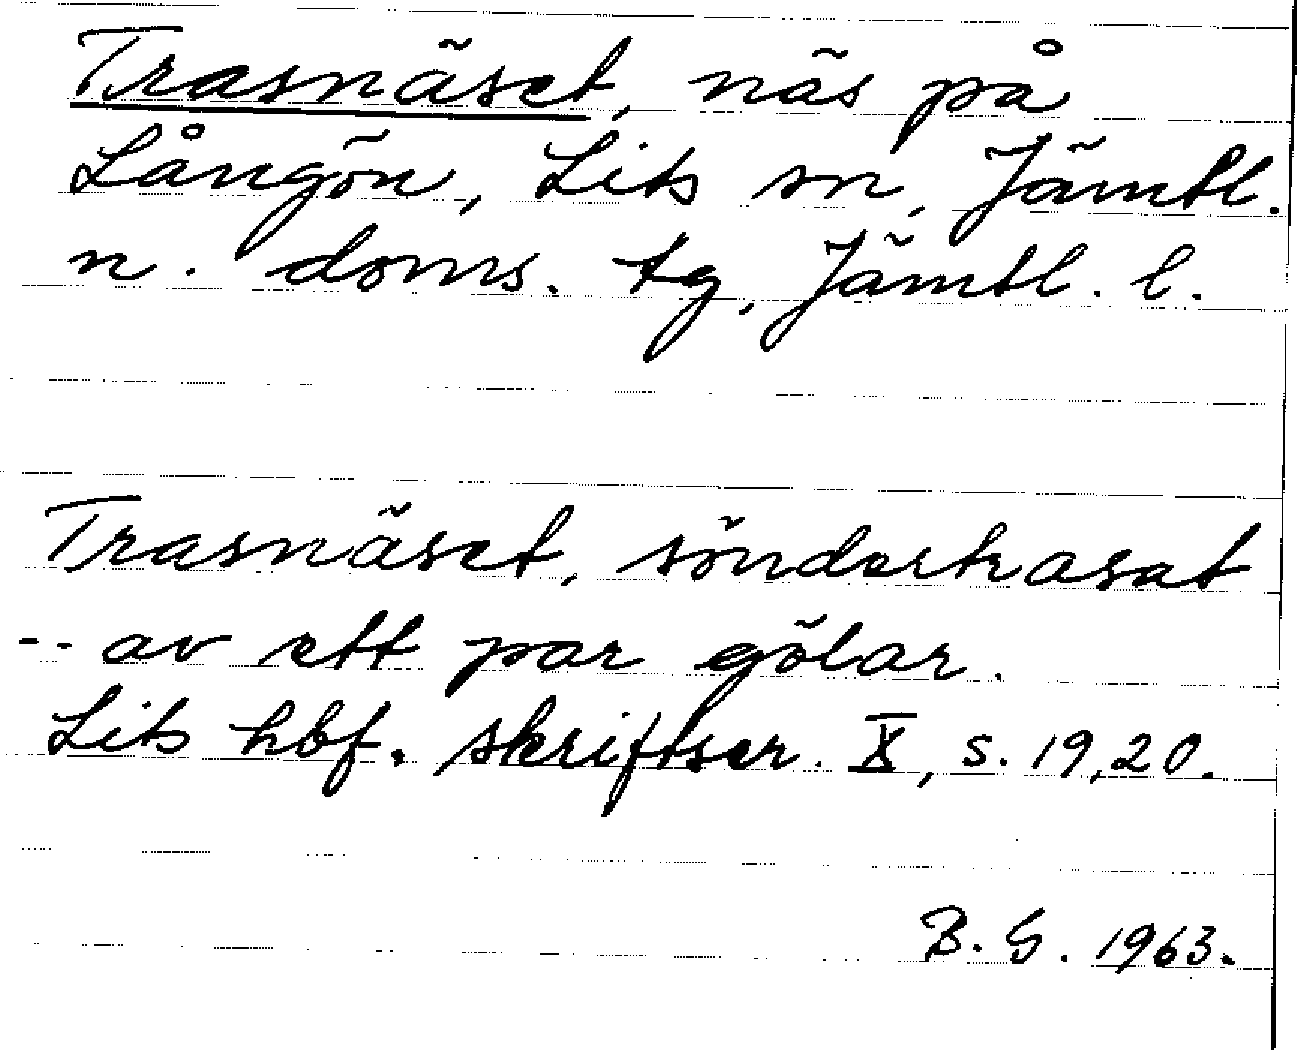 Trasnäset, näs på
Långön, Lits sn, Jämtl.
n. doms. tg, Jämtl. l.
Trasnäset, sönderhasat
-- av ett par gölar.
Lits hbf. skriftser. X, s. 19,20.
B. G. 1963.